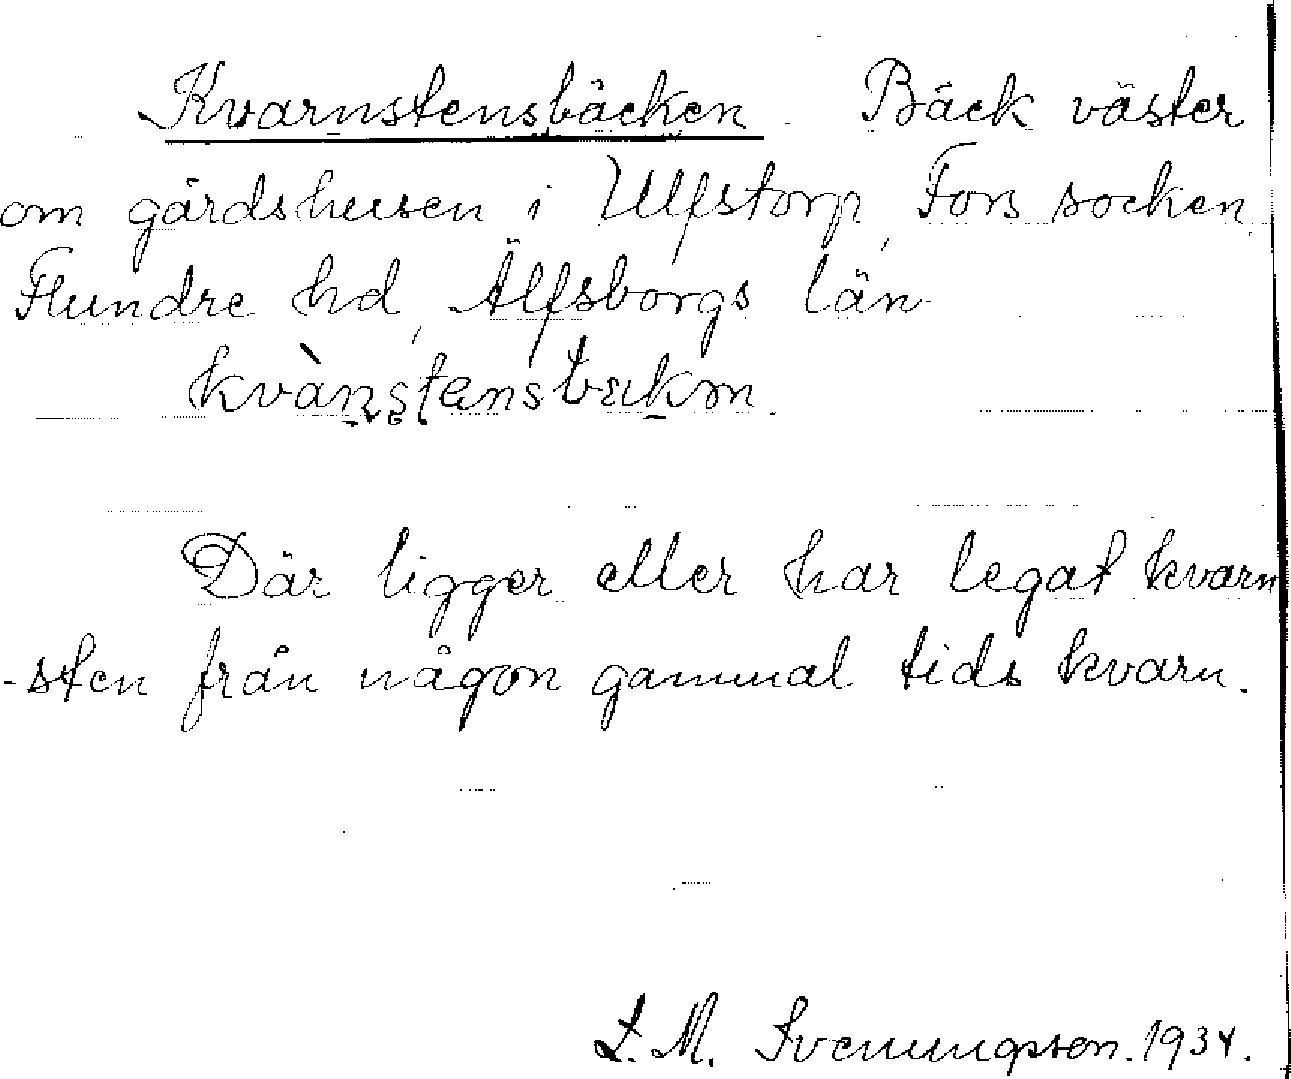 Kvarnstensbäcken. Bäck väster
om gårdshusen i Ulfstorp, Fors socken,
Flundre hd, Älfsborgs län.
kvànstensbækən.
Där ligger eller har legat kvarn
-sten från någon gammal tids kvarn.
L. M. Svenungsson. 1934.